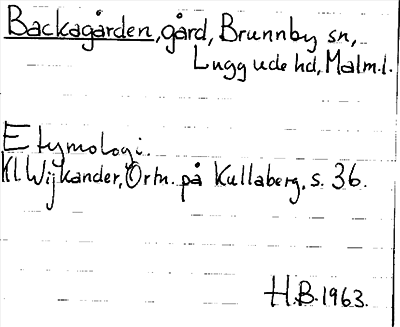 Backagården, gård, Brunnby sn,
Luggude hd, Malm.l.
Etymologi.
Kl. Wijkander, Ortn. på Kullaberg, s. 36.
H.B. 1963.